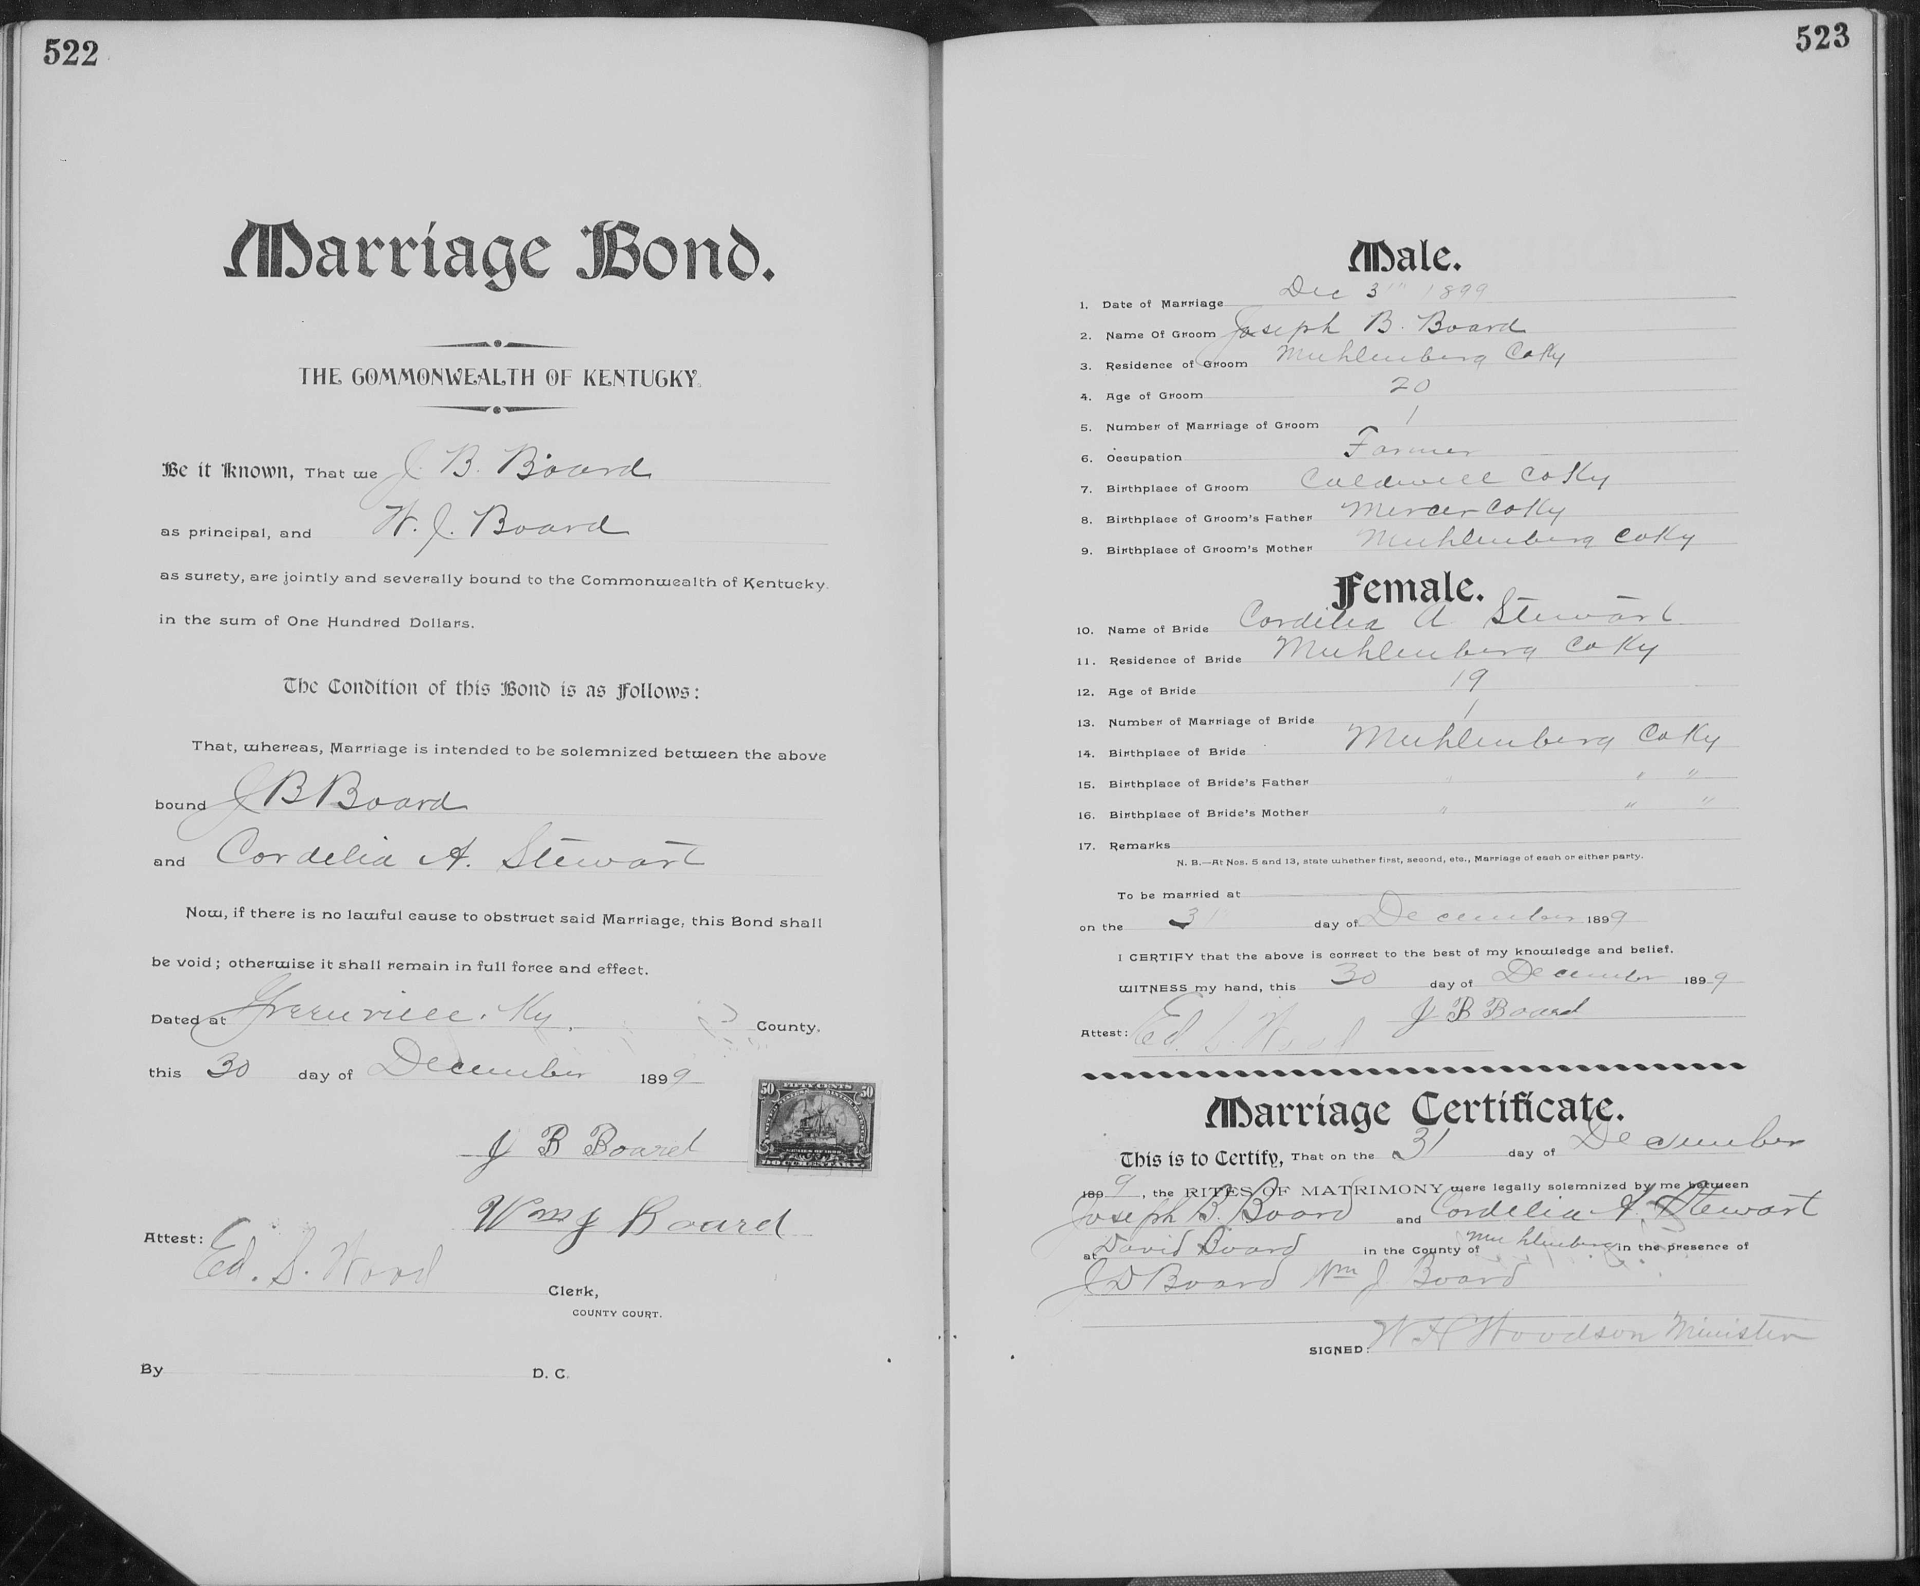 522
Marriage Bond.
THE COMMONWEALTH OF KENTUCKY.
Be it Known, That we J. B. Board
as principal, and W. J. Board
as surety, are jointly and severally bound to the Commonwealth of Kentucky.
in the sum of One Hundred Dollars.
The Condition of this Bond is as Follows:
That, whereas, Marriage is intended to be solemnized between the above
bound J B Board
and Cordelia A. Stewart
Now, if there is no lawful cause to obstruct said Marriage, this Bond shall
be void; otherwise it shall remain in full force and effect.
Dated at Greenville, Ky, County.
this 30 day of December 1899
50 FIFTY CENTS 50
DOCUMENTARY
J B Board
Wm J Board
Attest: Ed. S. Wood
Clerk,
COUNTY COURT.
By D. C.
523
Male.
1. Date of Marriage Dec 31" 1899
2. Name Of Groom Joseph B. Board
3. Residence of Groom Muhlenberg Co Ky
4. Age of Groom 20
5. Number of Marriage of Groom 1
6. Occupation Farmer
7. Birthplace of Groom Caldwell Co Ky
8. Birthplace of Groom's Father Mercer Co Ky
9. Birthplace of Groom's Mother Muhlenberg Co Ky
Female.
10. Name of Bride Cordelia A Stewart
11. Residence of Bride Muhlenberg Co Ky
12. Age of Bride 19
13. Number of Marriage of Bride 1
14. Birthplace of Bride Muhlenberg Co Ky
15. Birthplace of Bride's Father " " "
16. Birthplace of Bride's Mother " " "
17. Remarks
N. B.—At Nos. 5 and 13, state whether first, second, etc., Marriage of each or either party.
To be married at
on the 31 day of December 1899
I CERTIFY that the above is correct to the best of my knowledge and belief.
WITNESS my hand, this 30 day of December 1899
J B Board
Attest: Ed. S. Wood
Marriage Certificate.
This is to Certify, That on the 31 day of December
1899, the RITES OF MATRIMONY were legally solemnized by me between
Joseph B. Board and Cordelia A. Stewart
at David Board in the County of Muhlenberg in the presence of
J D Board Wm J Board
SIGNED: W H Woodson Minister